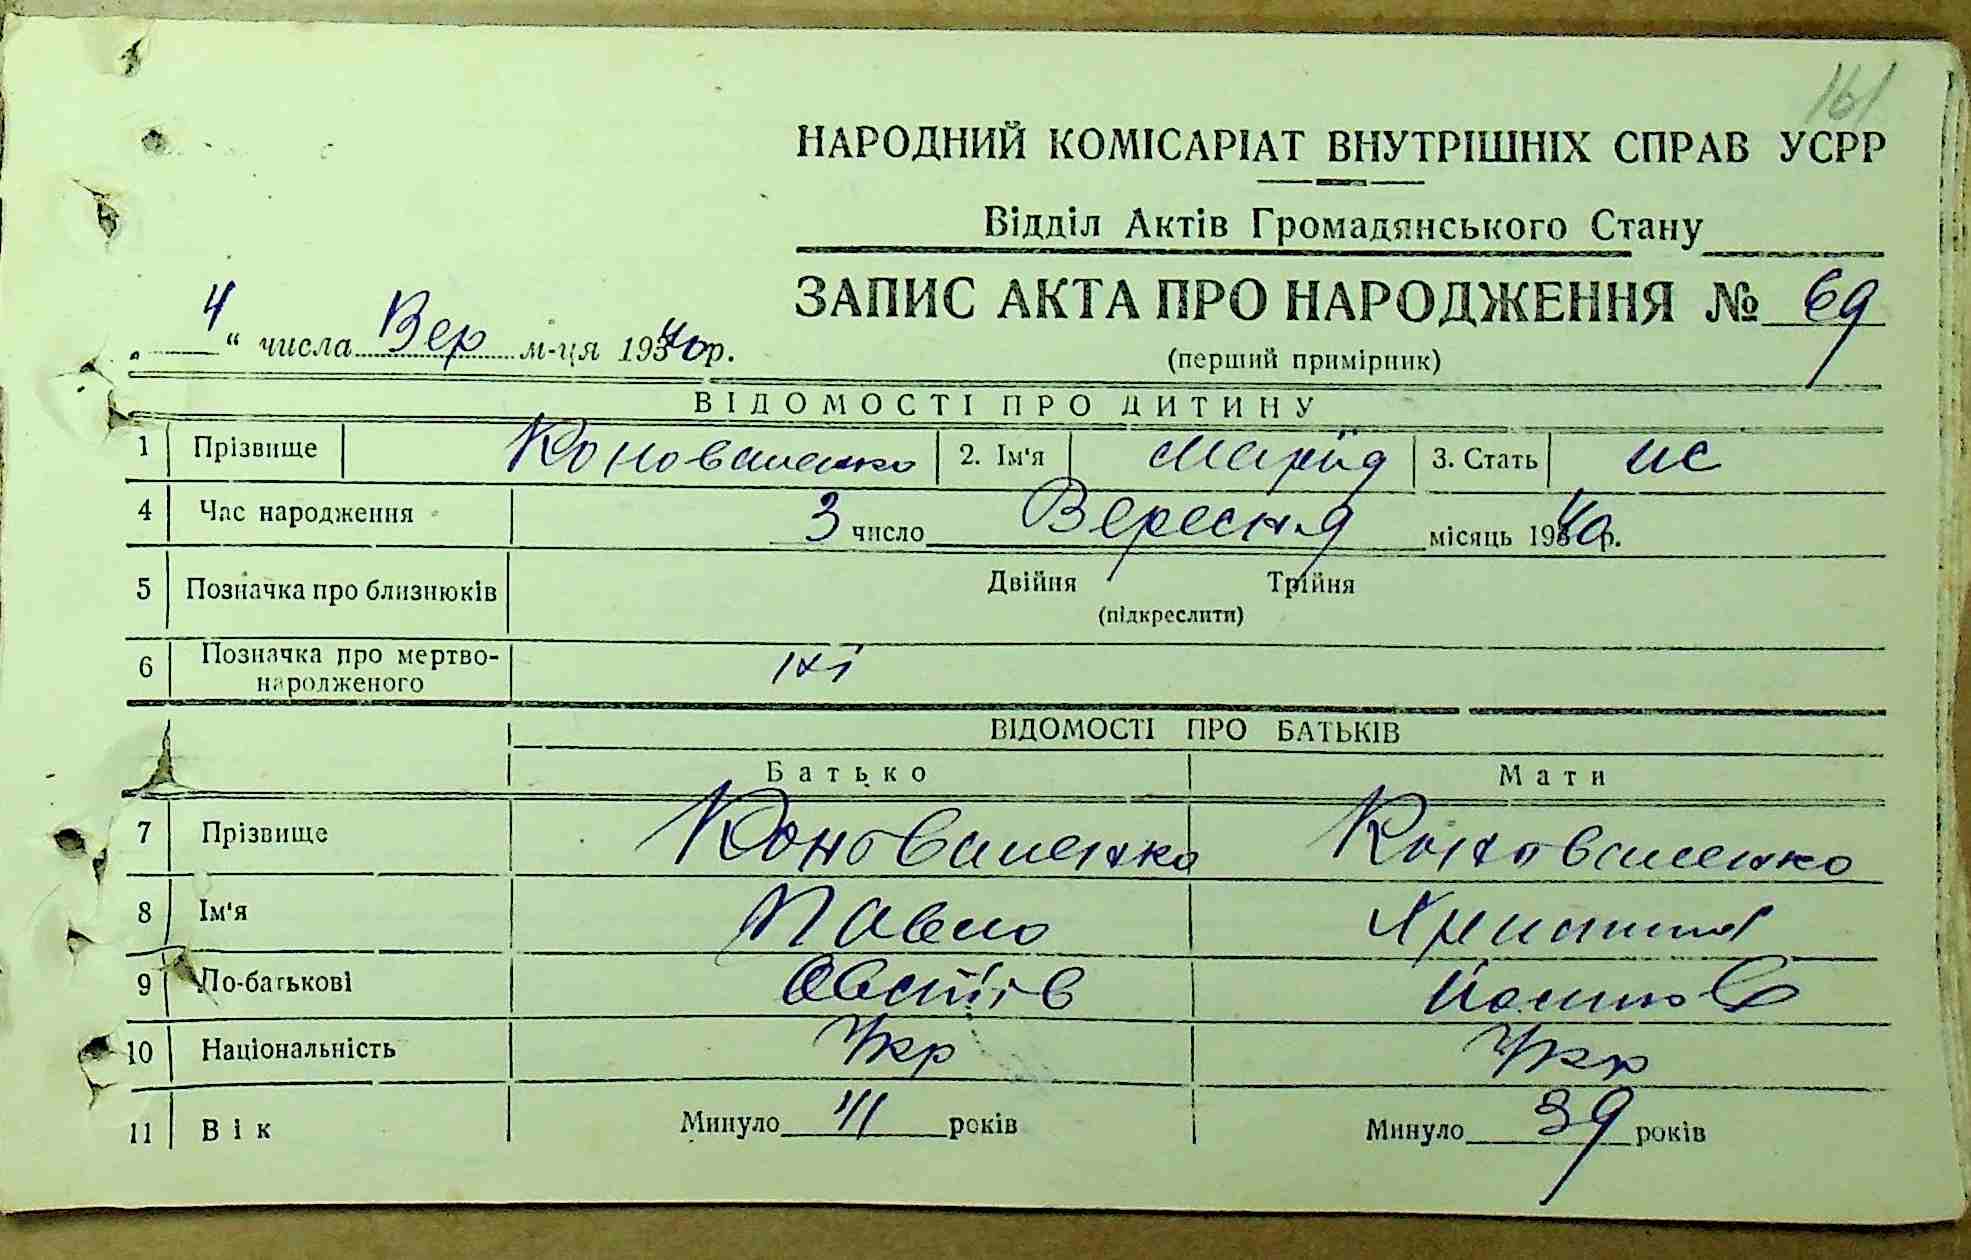 161
НАРОДНИЙ КОМІСАРІАТ ВНУТРІШНІХ СПРАВ УСРР
Відділ Актів Громадянського Стану
ЗАПИС АКТА ПРО НАРОДЖЕННЯ № 69
„ 4 “ числа Вер м-ця 1940 р.
(перший примірник)
ВІДОМОСТІ ПРО ДИТИНУ
1 Прізвище Коноваленко 2. Ім'я Марія 3. Стать
4 Час народження 3 число Вересня місяць 1940 р.
5 Позначка про близнюків Двійня Трійня
(підкреслити)
6 Позначка про мертво-
народженого ні
ВІДОМОСТІ ПРО БАТЬКІВ
Батько Мати
7 Прізвище Коноваленко Коноваленко
8 Ім'я Павло
9 По-батькові
10 Національність Укр Укр
11 Вік Минуло 41 років Минуло 39 років